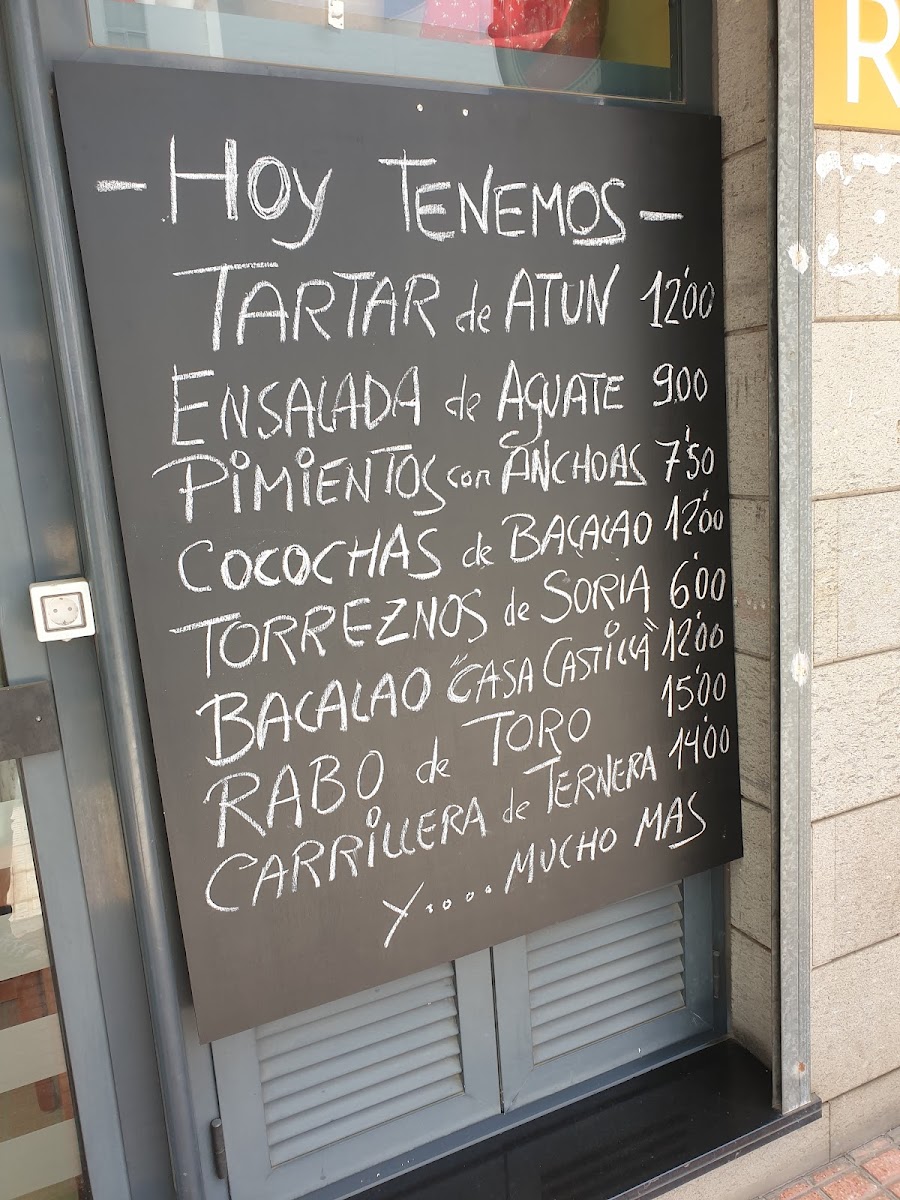 - Hoy TENEMOS -
TARTAR de ATUN 12'00
ENSALADA de AGUATE 9'00
PIMIENTOS con ANCHOAS 7'50
COCOCHAS de BACALAO 12'00
TORREZNOS de SORIA 6'00
BACALAO "CASA CASTILLA" 12'00
RABO de TORO 15'00
CARRILLERA de TERNERA 14'00
Y.... MUCHO MAS
R